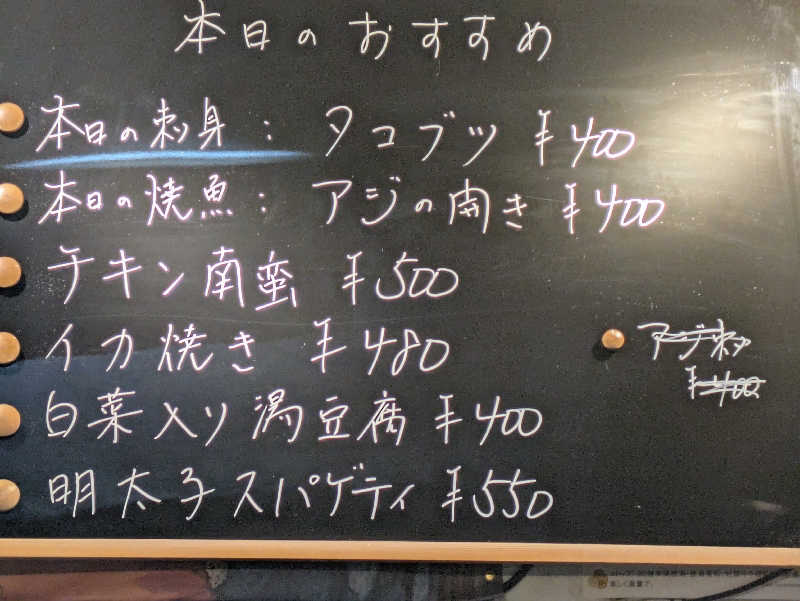 本日のおすすめ
本日の刺身： タコブツ ¥400
本日の焼魚： アジの開き ¥400
チキン南蛮 ¥500
イカ焼き ¥480
白菜入り湯豆腐 ¥400
明太子スパゲティ ¥550
アジ刺
¥400